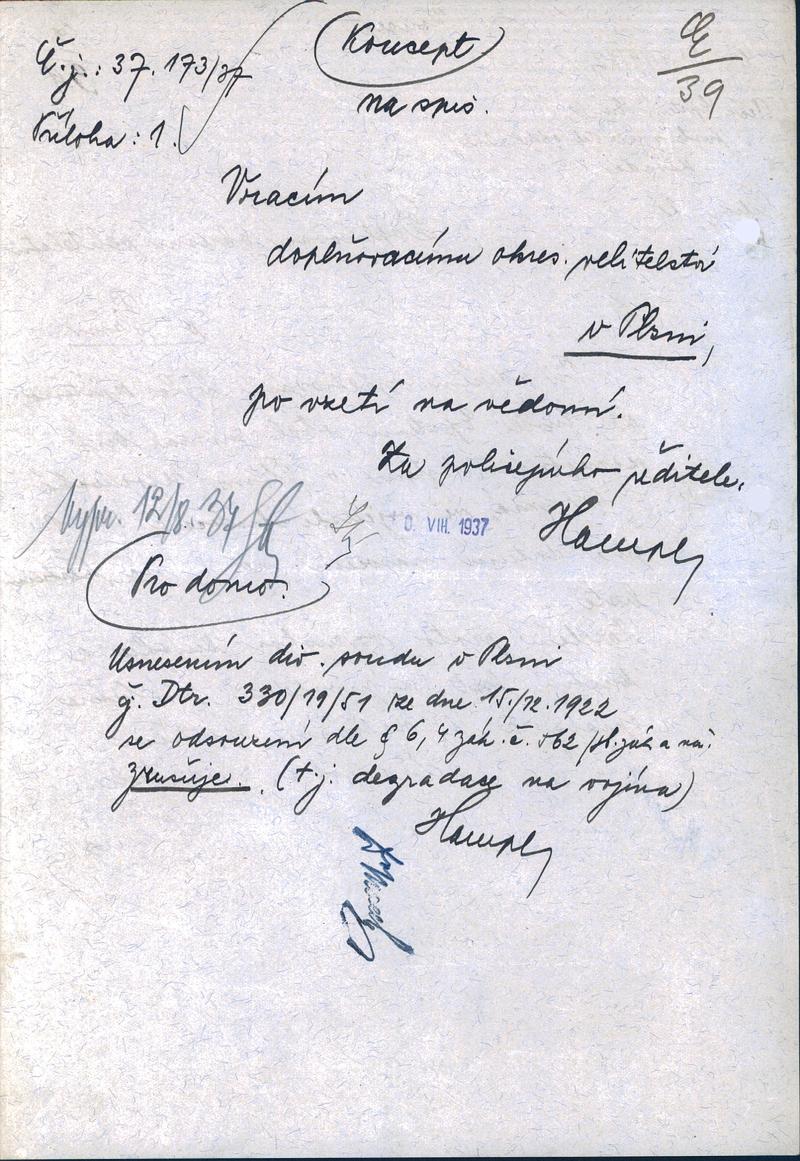 Č.j.: 37.173/37
Příloha: 1.
Koncept
na spis.
39
Vracím
doplňovacímu okres. velitelství
v Plzni,
po vzetí na vědomí.
Za policejního ředitele.
Hampl
Vypr. 12/8. 37
0. VIII. 1937
Pro domo.
Usnesením div. soudu v Plzni
č. Dtr. 330/19/51 ze dne 15./12.1922
se odsouzení dle § 6, 4 zák. č. 562/19. zák a nař.
zrušuje. (t.j. degradace na vojína)
Hampl